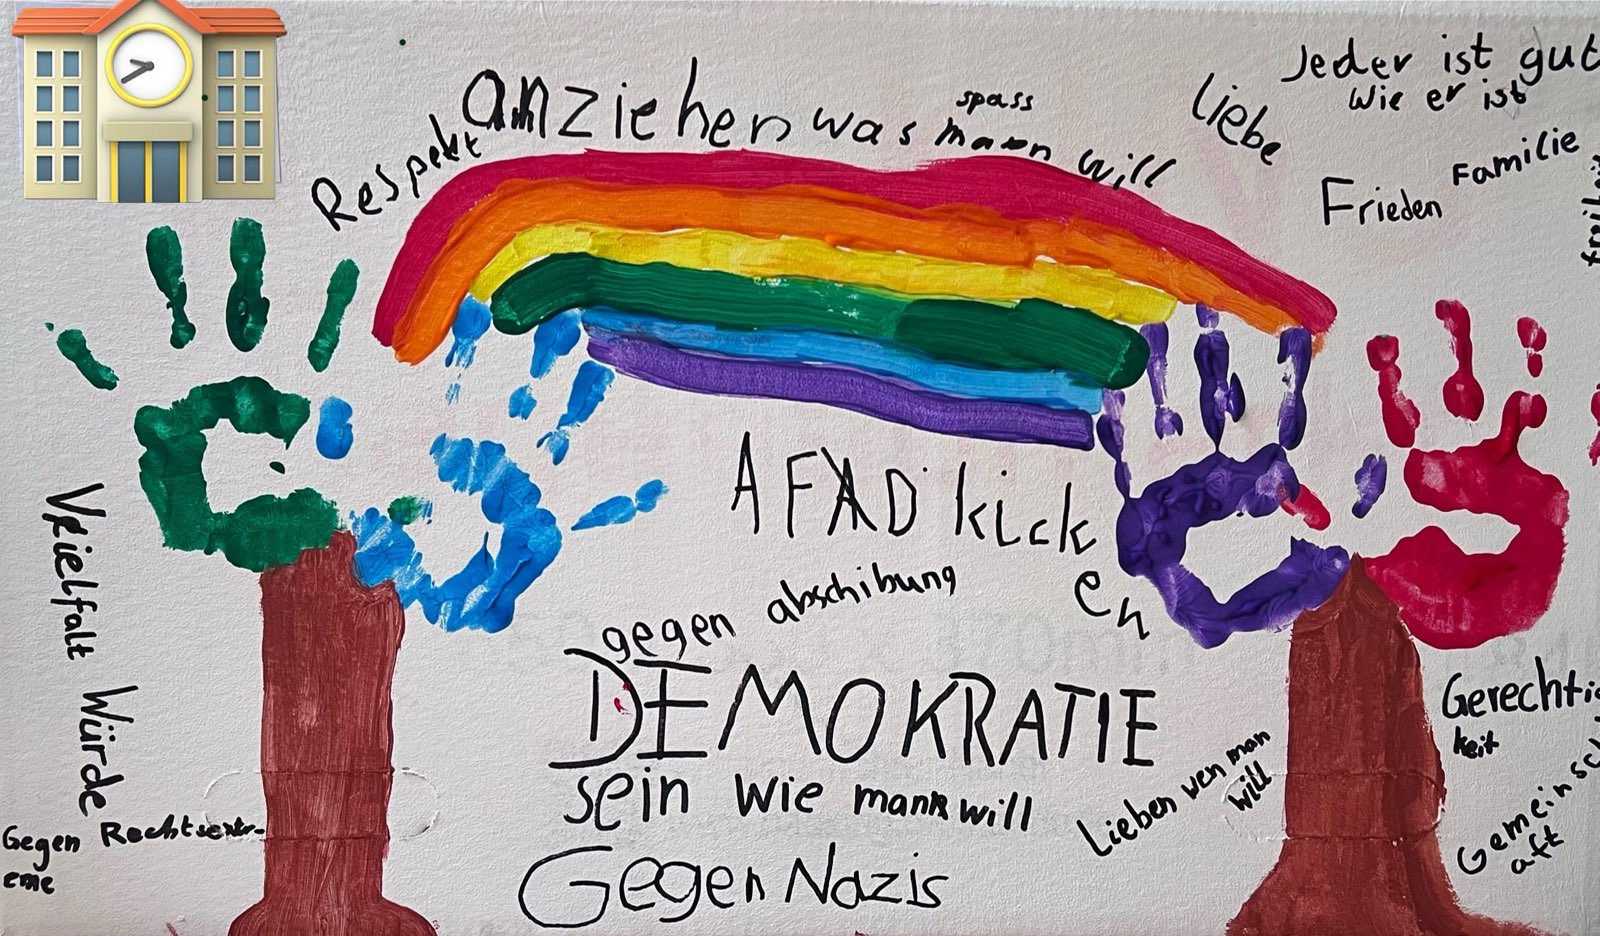 Respekt
anziehen was mann will
spass
Liebe
Jeder ist gut
wie er ist
Familie
Frieden
AFAD kicken
gegen abschibung
DEMOKRATIE
sein wie mann will
Gegen Nazis
Vielfalt
Würde
Gegen Rechtsextr-
eme
Lieben wen man
will
Gerechtig
keit
Gemeinsch
aft